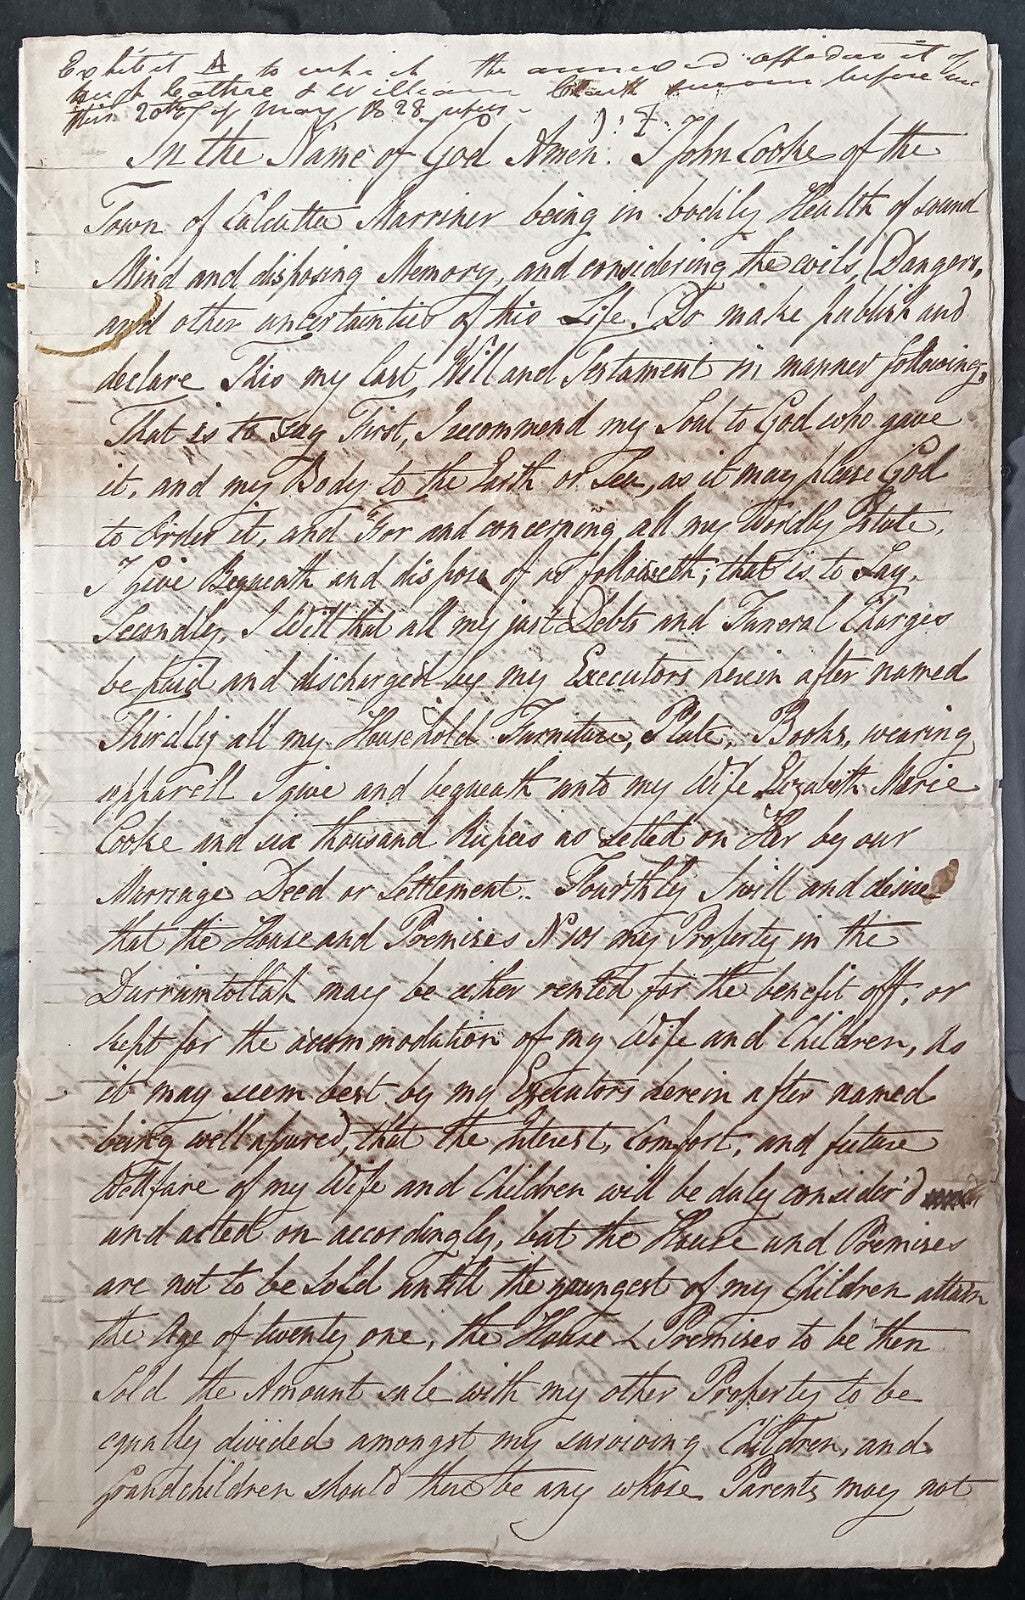 Exhibit A to which the annexed affidavit of
Hugh Cathre & William Clark sworn before me
this 20th of May 1828 refers
In the Name of God Amen. I John Cooke of the
Town of Calcutta Marriner being in bodily Health of sound
Mind and disposing Memory, and considering the evils, Dangers,
and other uncertainties of this Life. Do make publish and
declare This my last Will and Testament in manner following,
That is to say First, I recommend my Soul to God who gave
it, and my Body to the Earth or Sea, as it may please God
to Order it, and For and concerning all my Worldly Estate,
I Give Bequeath and dispose of as followeth; that is to Say.
Secondly, I Will that all my just Debts and Funeral Charges
be paid and discharged by my Executors herein after named
Thirdly all my Household Furniture, Plate, Books, wearing
apparell I give and bequeath unto my Wife Elizabeth Marie
Cooke and six thousand Rupees as setled on Her by our
Marriage Deed or Settlement.. Fourthly I will and desire
that the House and Premises N my Property in the
Durrumtollah may be either rented for the benefit off, or
kept for the accommodation of my Wife and Children, As
it may seem best by my Executors herein after named
being well assured, that the Interest, Comfort, and future
Wellfare of my Wife and Children will be duly consider'd
and acted on accordingly, but the House and Premises
are not to be Sold untill the youngest of my Children attain
the Age of twenty one, the House & Premises to be then
Sold the Amount sale with my other Property to be
equally divided amongst my surviving Children, and
Grandchildren should there be any whose Parents may not